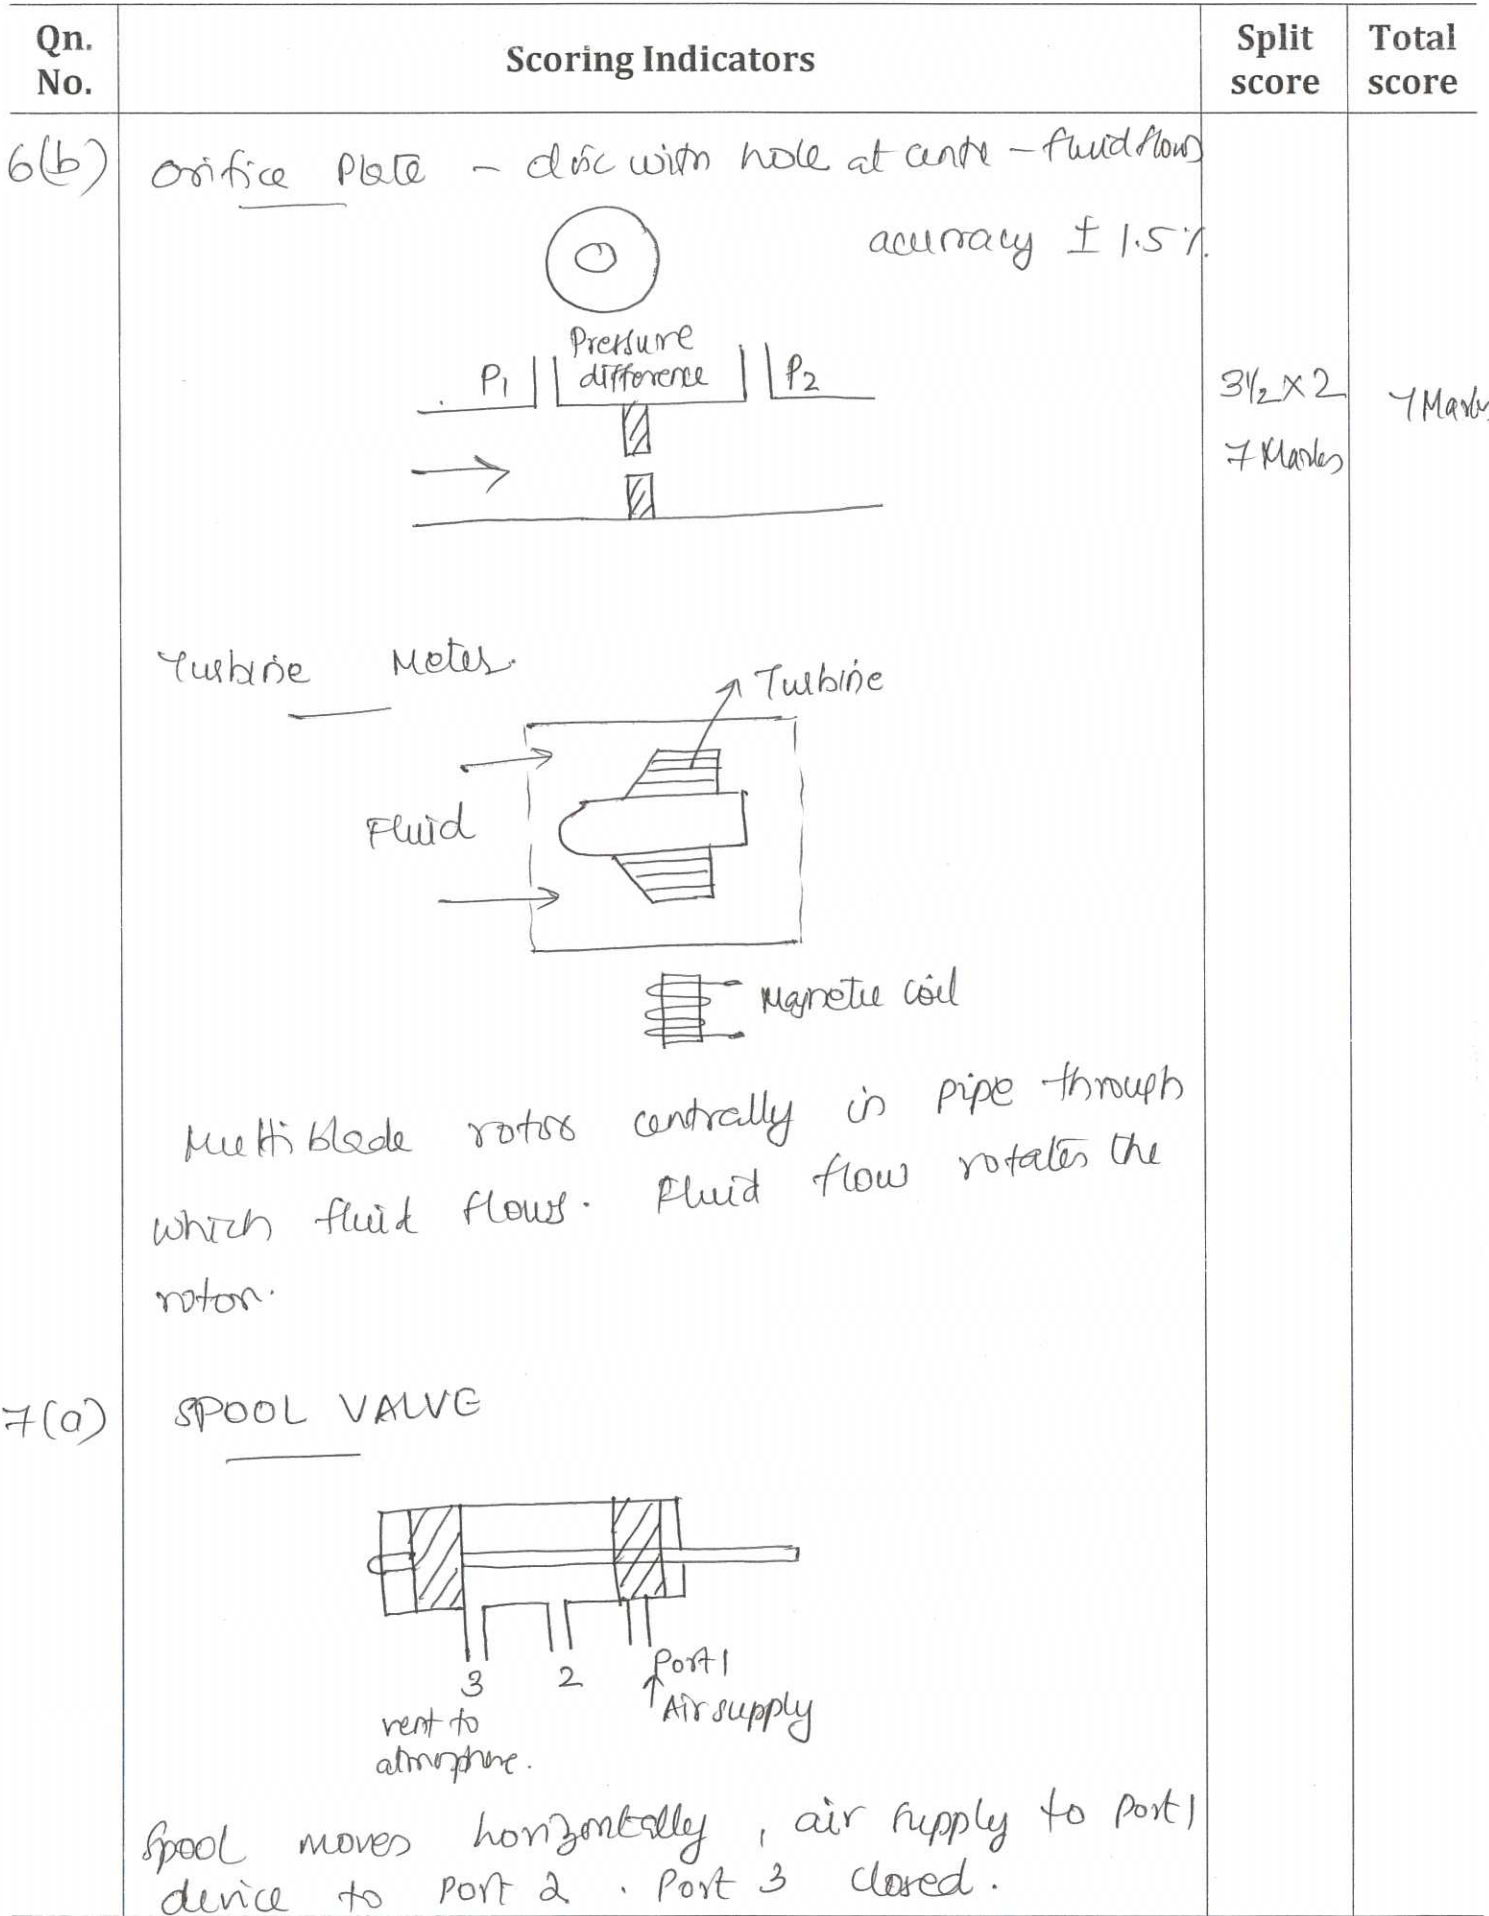 Qn. No.
Scoring Indicators
Split score
Total score
6(b)
Orifice Plate - disc with hole at centre - fluid flows
accuracy ± 1.5%
Pressure
difference
P1
P2
3½ x 2
7 Marks
7 Marks
Turbine Meter.
Turbine
Fluid
Magnetic coil
Multi blade rotor centrally in pipe through
which fluid flows. Fluid flow rotates the
rotor.
7(a)
SPOOL VALVE
3
2
Port 1
Air supply
vent to
atmosphere.
Spool moves horizontally, air supply to port 1
device to port 2. Port 3 closed.